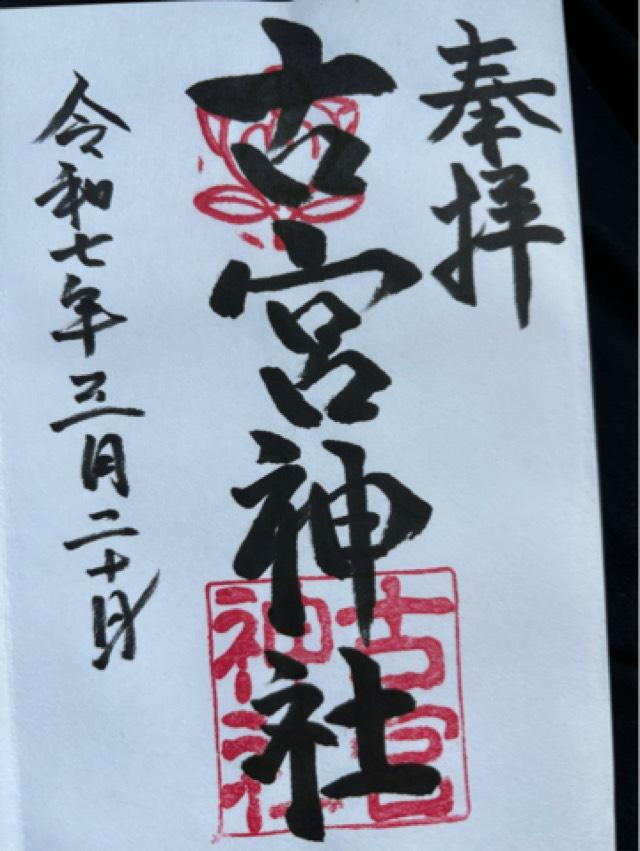 奉拝
古宮神社
古宮
神社
令和七年三月二十日